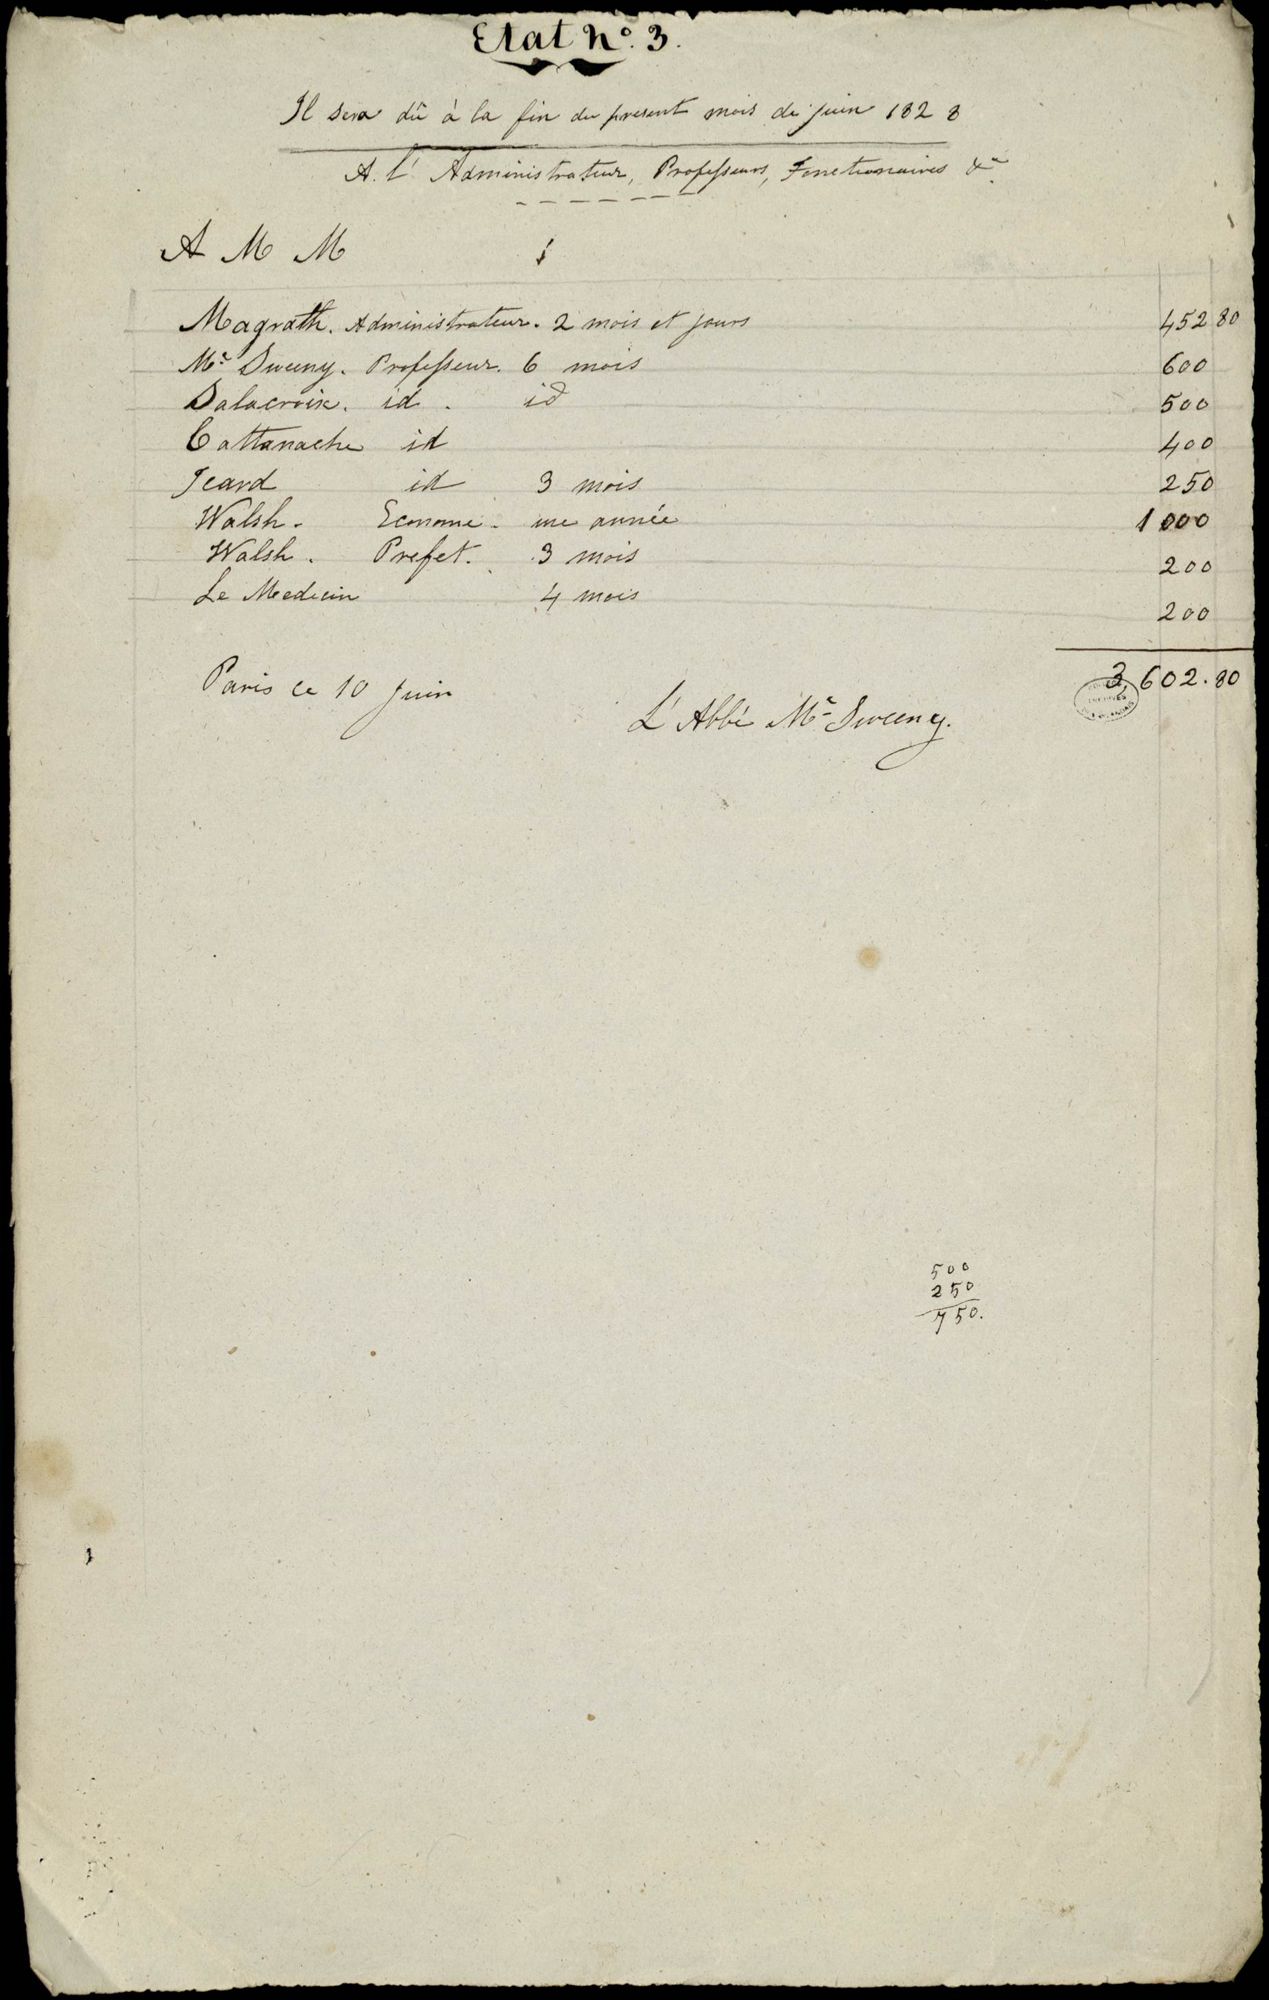 Etat No. 3.
Il sera dû à la fin du present mois de juin 1828
A. l'Administrateur, Professeurs, Fonctionaires &a
A M M
Magrath. Administrateur. 2 mois et jours 452 80
Mc Sweeny. Professeur. 6 mois 600
Dalacroix. id. id 500
Cattanache id 400
Icard id 3 mois 250
Walsh. Econome. une année 1000
Walsh. Prefet. 3 mois 200
Le Medecin 4 mois 200
3602.80
Paris ce 10 Juin
L'Abbé Mc Sweeny.
500
250
750.